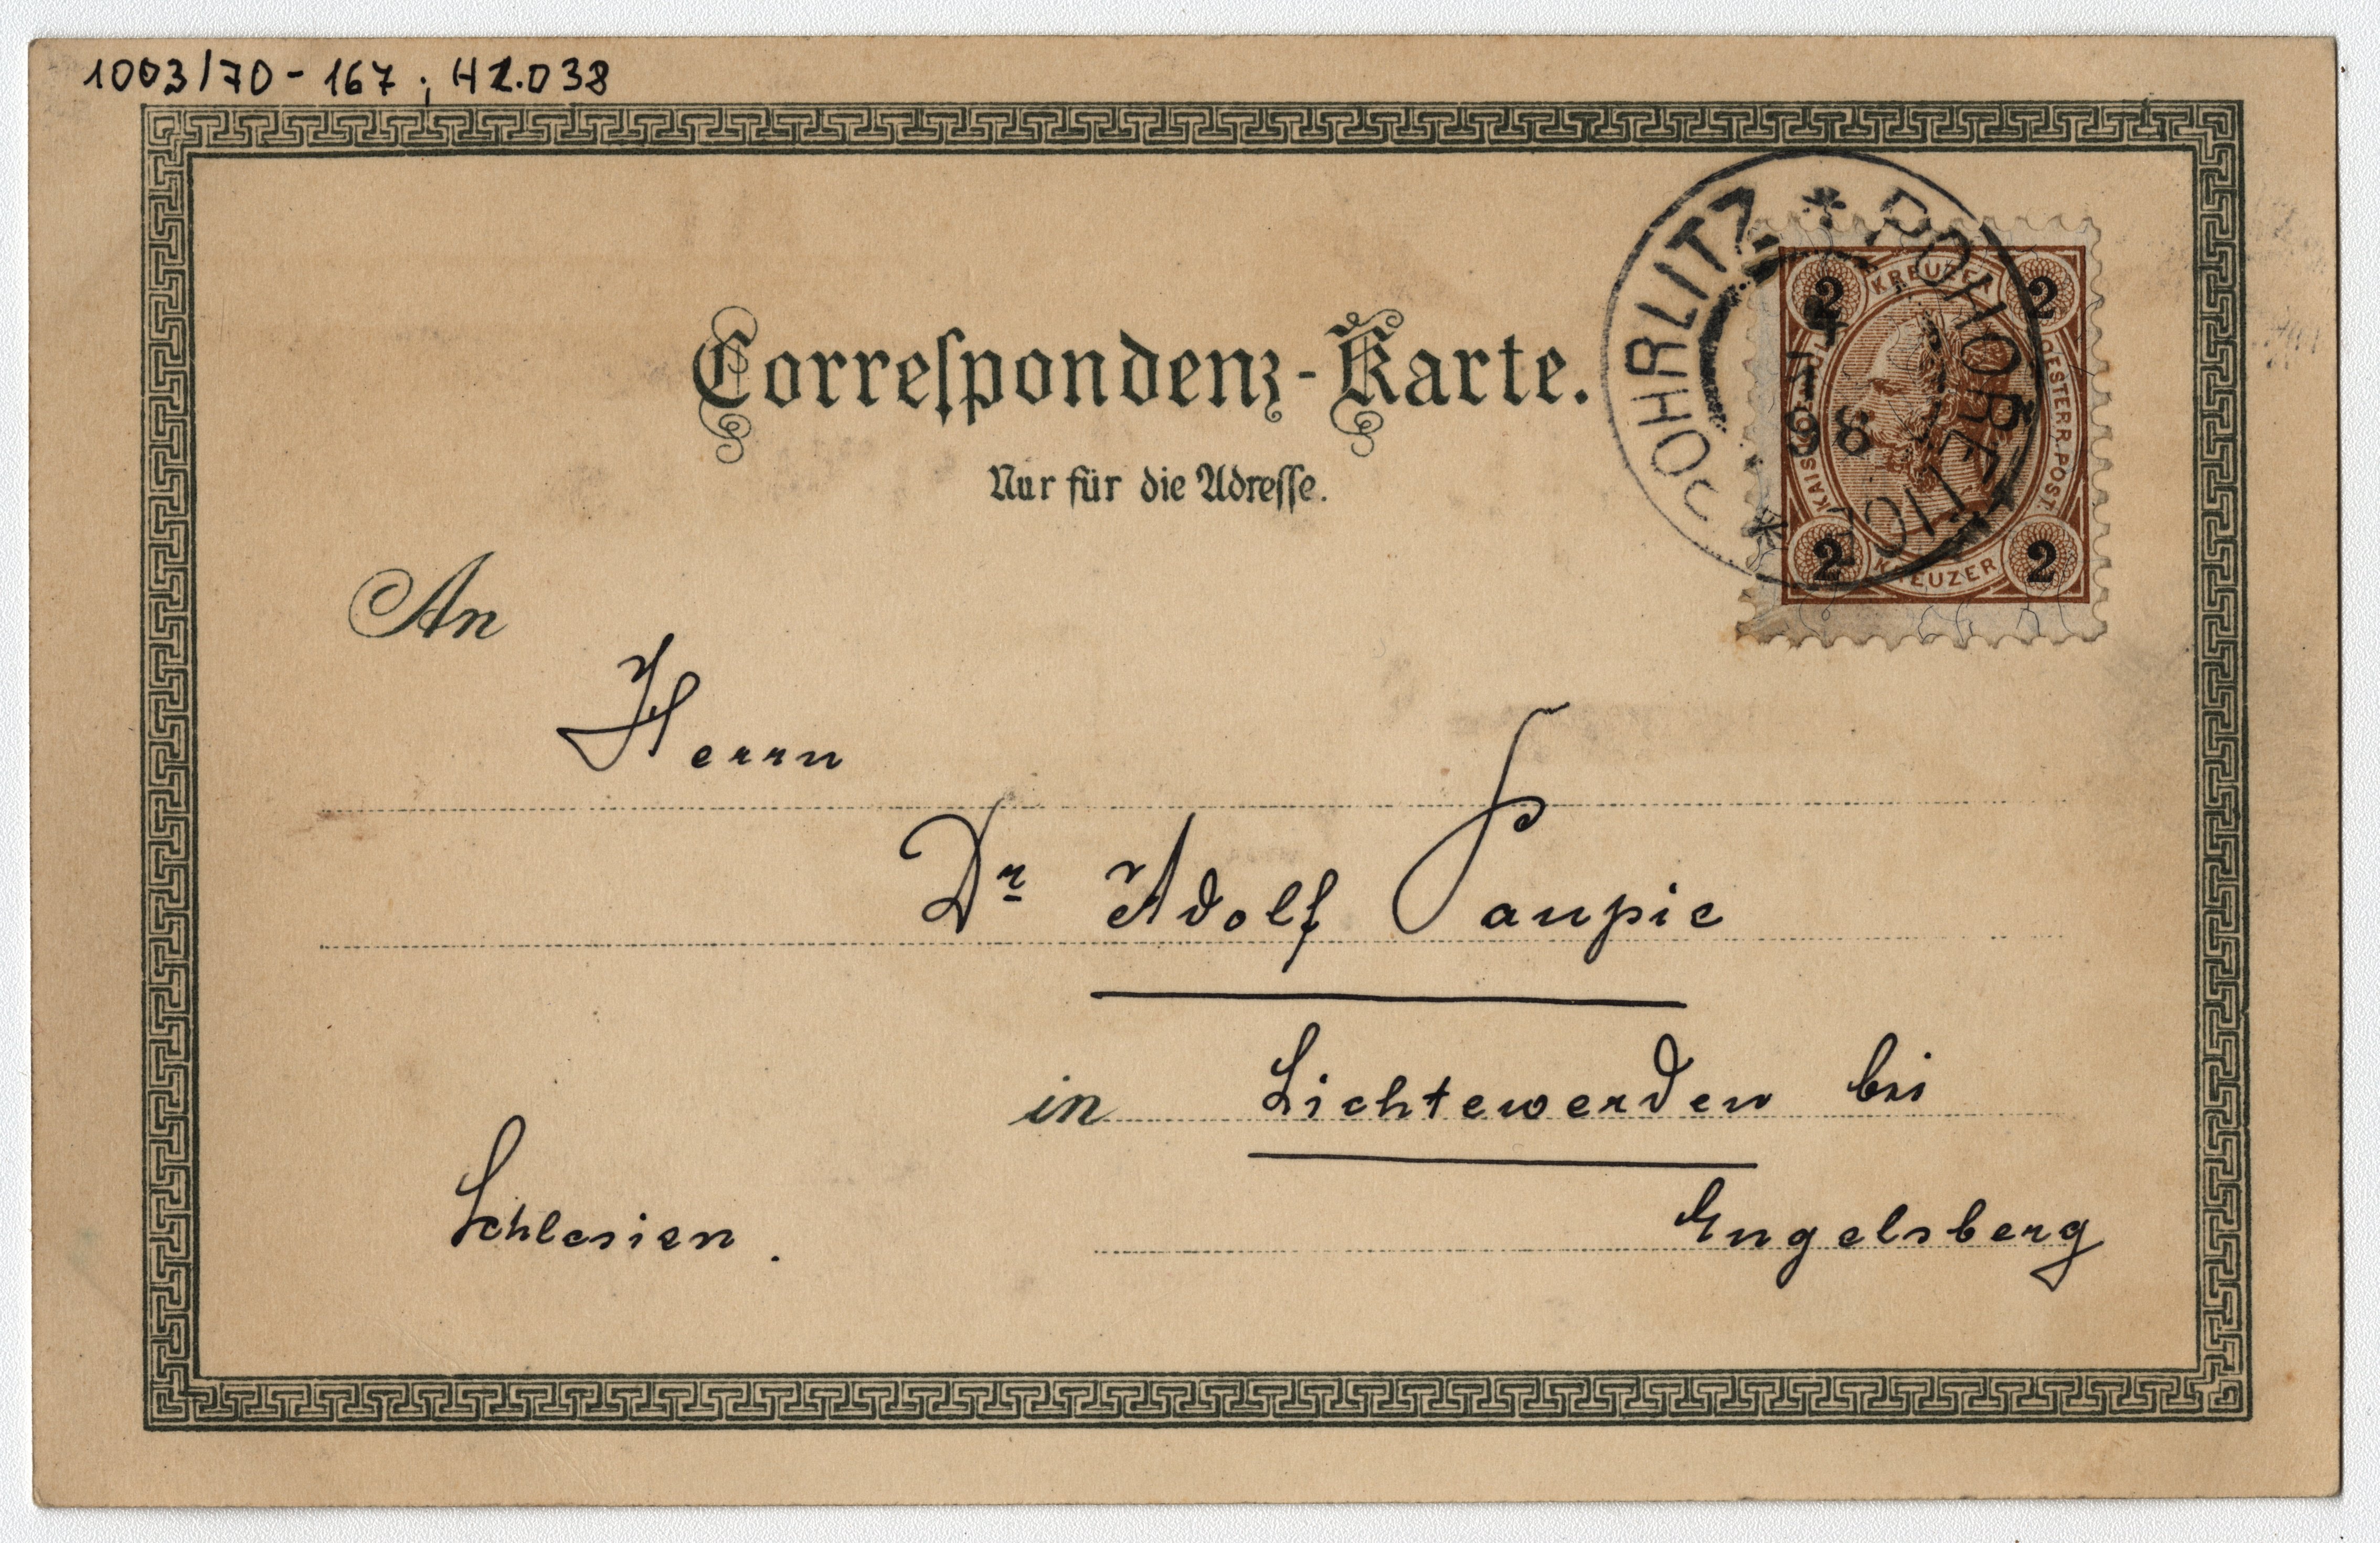 1003/70-167; H2.038
Correſpondenz-Karte.
Nur für die Adreſſe.
POHRLITZ * POHOŘELICE *
98
2 KREUZER 2
OESTERR. POST.
2 KREUZER 2
An
Herrn
Dr Adolf Paupie
in Lichtewerden bei
Schlesien. Engelsberg